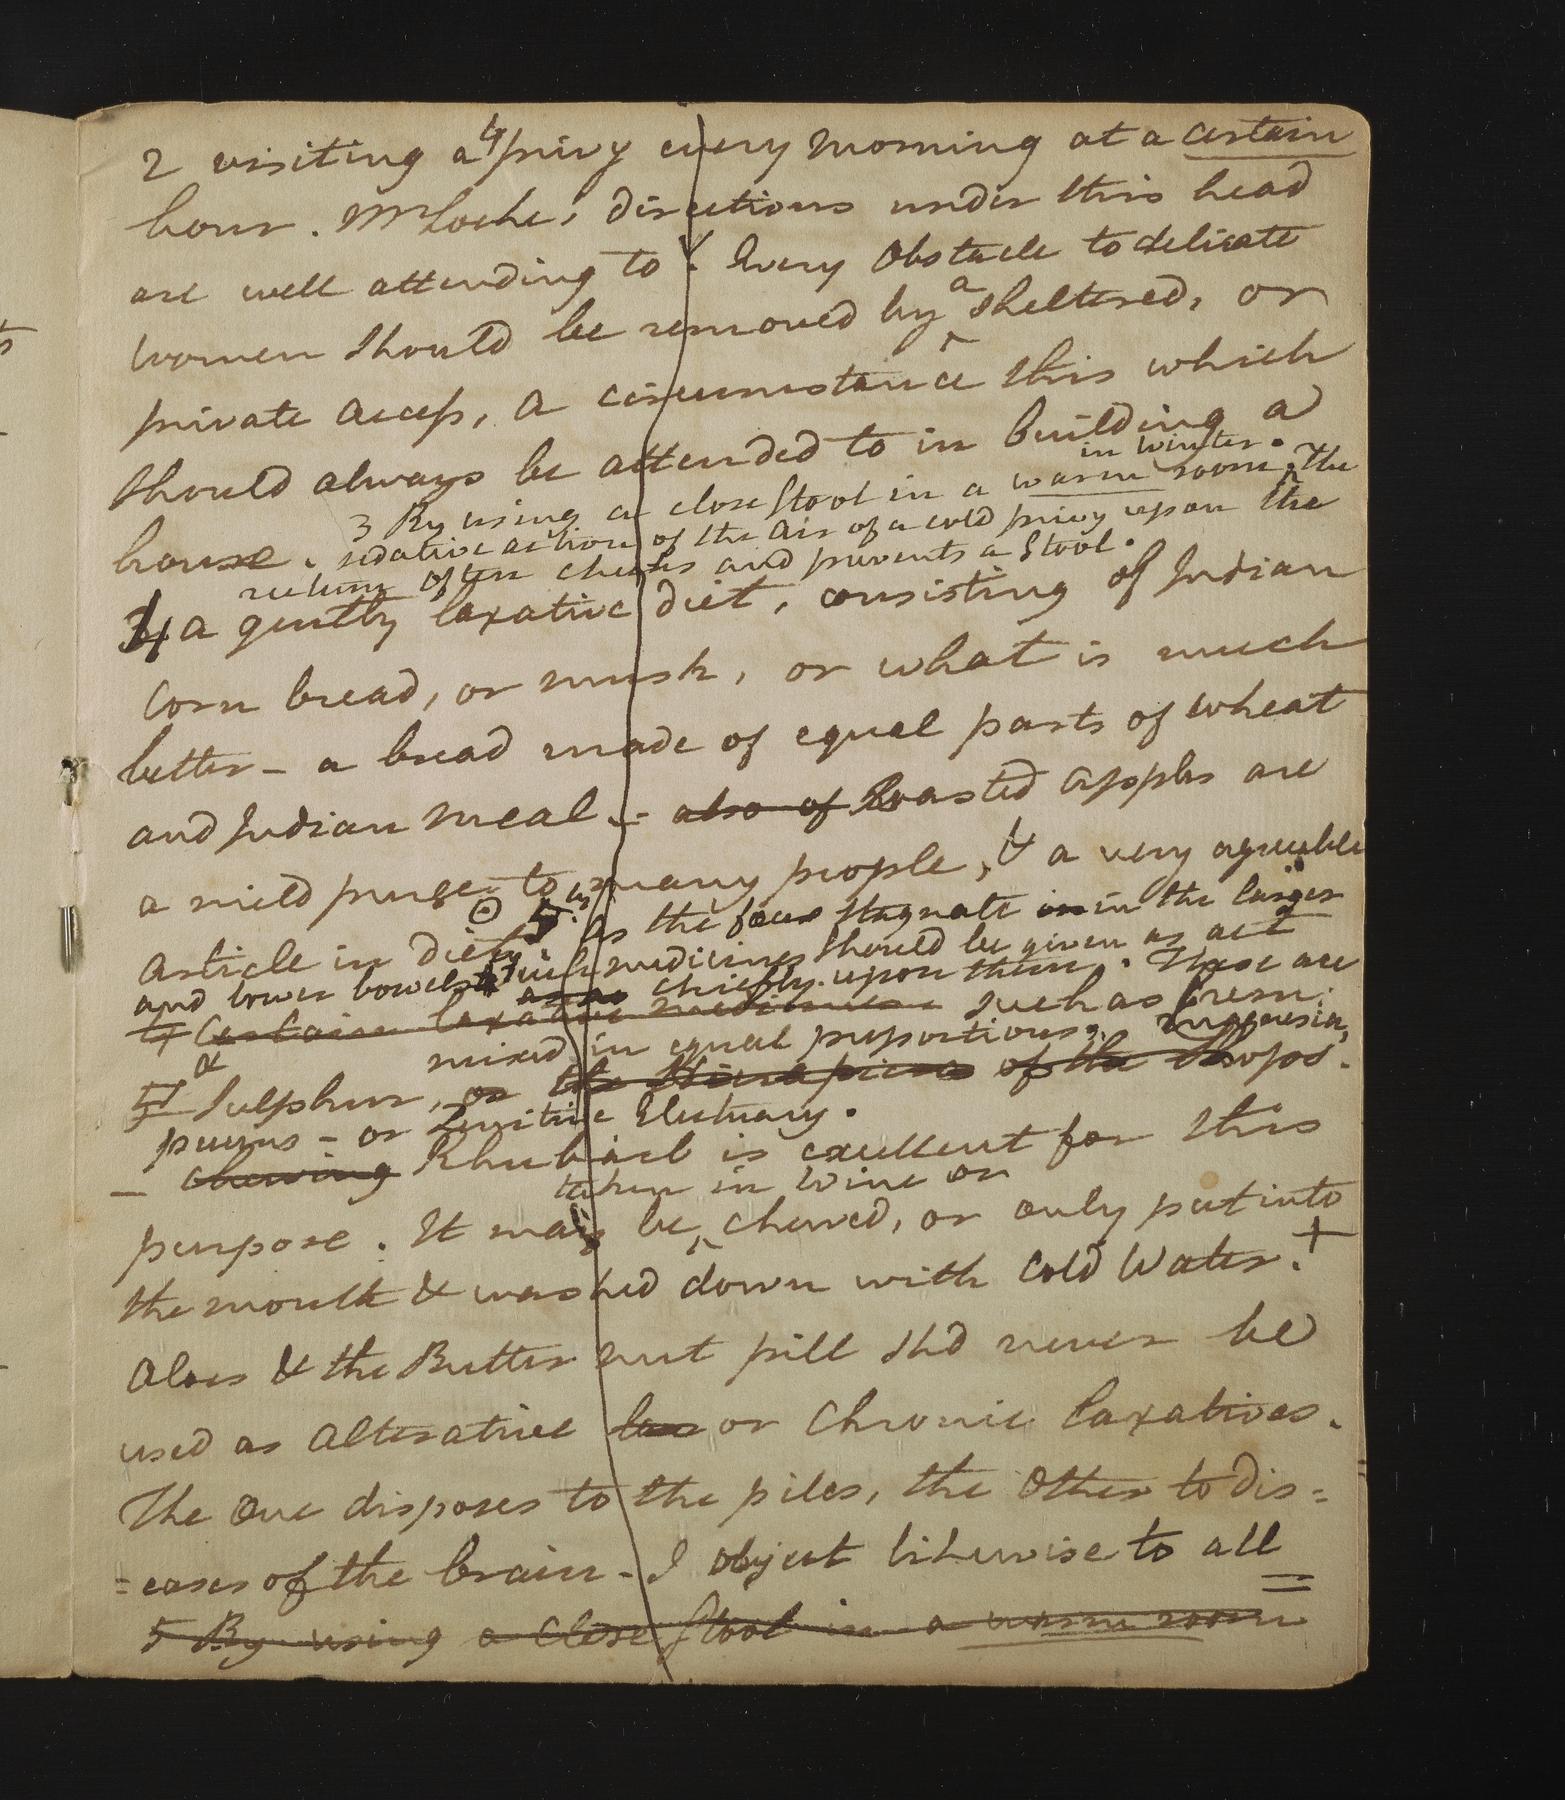 2 visiting a privy every morning at a certain
hour. Mr Locke's directions under this head
are well attending to. Every Obstacle to delicate
women should be removed by a sheltered, or
private access, a circumstance this which
should always be attended to in building a
house. 3 By using a close stool in a warm room in winter. The
sedative action of the air of a cold privy upon the
rectum often checks and prevents a stool.
4 a gently laxative diet, consisting of Indian
Corn bread, or mush, or what is much
better – a bread made of equal parts of wheat
and Indian meal. – also of Roasted apples are
a mild purge to many people, & a very agreeable
article in diet. 5 As the faeces stagnate in in the larger
and lower bowels such medicines should be given as act
as as chiefly upon them. These are
4 Certain laxative medicines such as Crem:
& mixed in equal proportions, magnesia,
Sulphur, or of the
prunes – or Lenitive Electuary.
– Chewing Rhubarb is excellent for this
purpose. It may be taken in wine or chewed, or only put into
the mouth & washed down with cold Water. +
Aloes & the Butter nut pill shd never be
used as Alterative lax or Chronic laxatives.
The One disposes to the piles, the Other to dis=
=eases of the brain – I object likewise to all
5 By using a close stool in a warm room